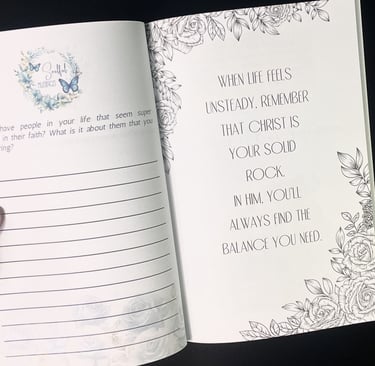 Soulful
have people in your life that seem super
in their faith? What is it about them that you
ring?
WHEN LIFE FEELS
UNSTEADY, REMEMBER
THAT CHRIST IS
YOUR SOLID
ROCK.
IN HIM, YOU'LL
ALWAYS FIND THE
BALANCE YOU NEED.